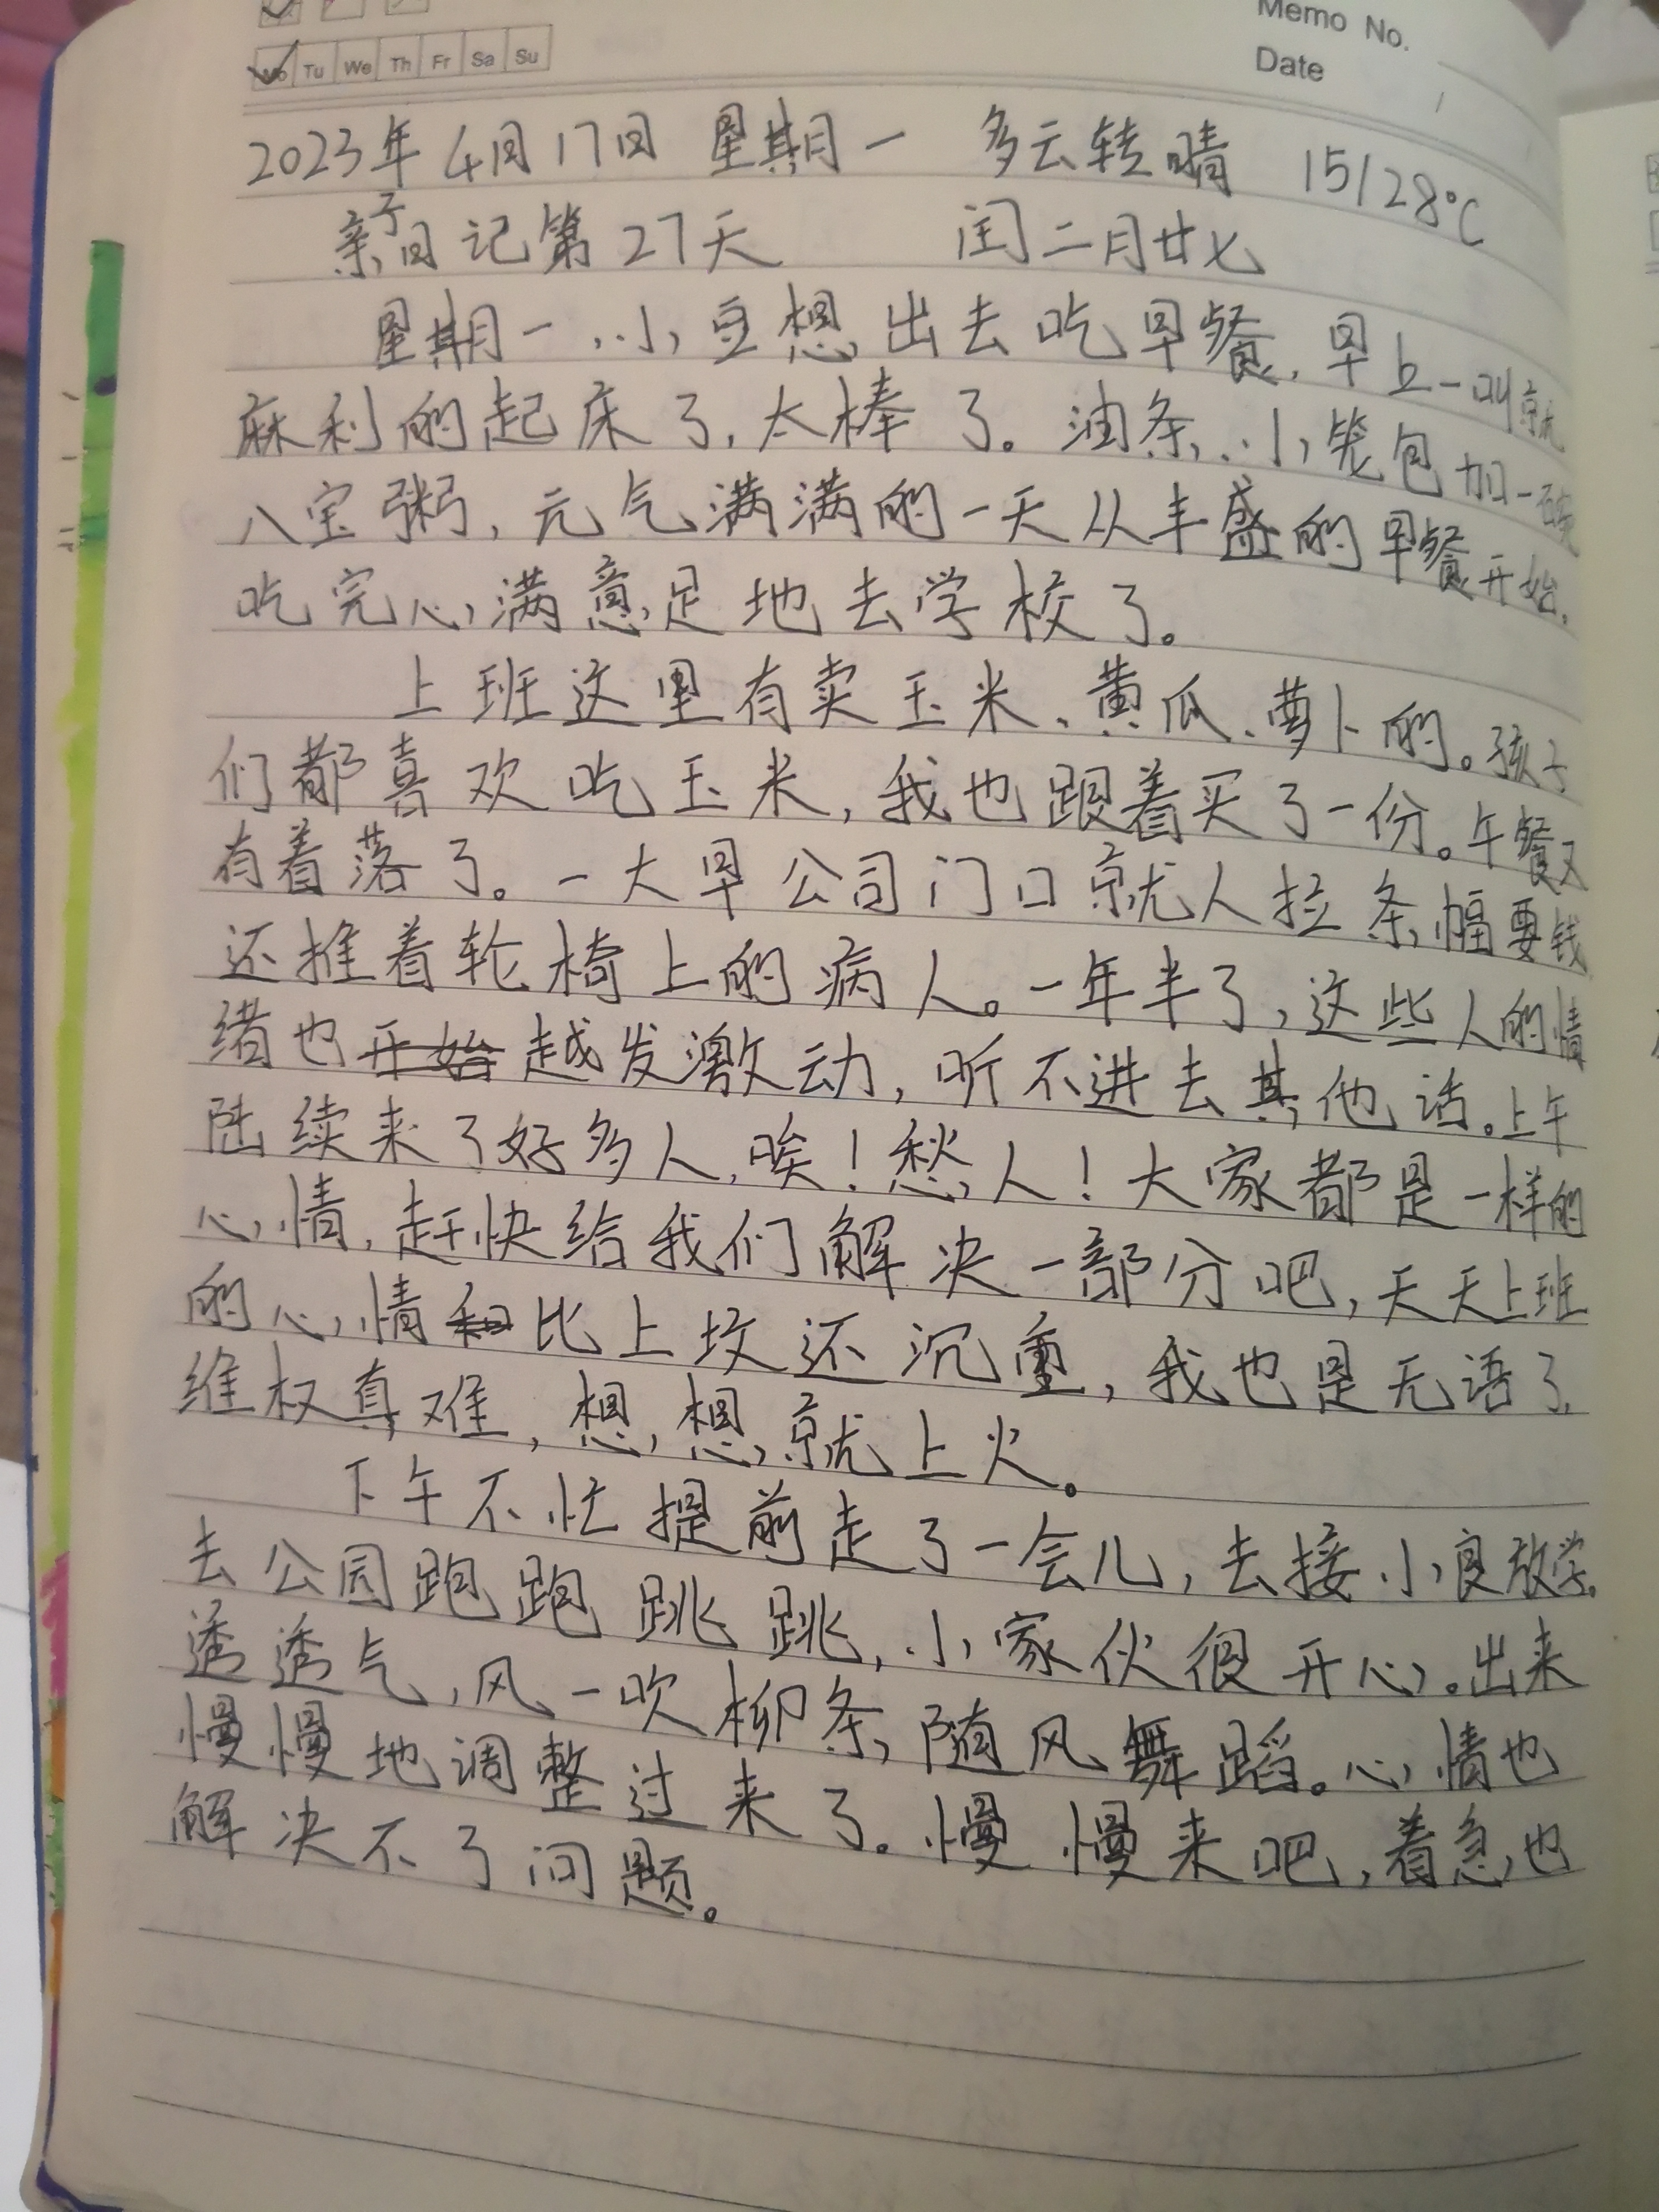 Memo No.
Mo Tu We Th Fr Sa Su
Date
2023年4月17日 星期一 多云转晴 15/28℃
亲子日记第27天 闰二月廿七
星期一,小豆想出去吃早餐,早上一叫就
麻利的起床了,太棒了。油条、小笼包加一碗
八宝粥,元气满满的一天从丰盛的早餐开始,
吃完心满意足地去学校了。
上班这里有卖玉米、黄瓜、萝卜的。孩子
们都喜欢吃玉米,我也跟着买了一份。午餐又
有着落了。一大早公司门口就人拉条幅要钱
还推着轮椅上的病人。一年半了,这些人的情
绪也开始越发激动,听不进去其他话。上午
陆续来了好多人,唉!愁人!大家都是一样的
心情,赶快给我们解决一部分吧,天天上班
的心情和比上坟还沉重,我也是无语了,
维权真难,想想就上火。
下午不忙提前走了一会儿,去接小良放学,
去公园跑跑跳跳,小家伙很开心。出来
透透气,风一吹柳条随风舞蹈。心情也
慢慢地调整过来了。慢慢来吧,着急也
解决不了问题。